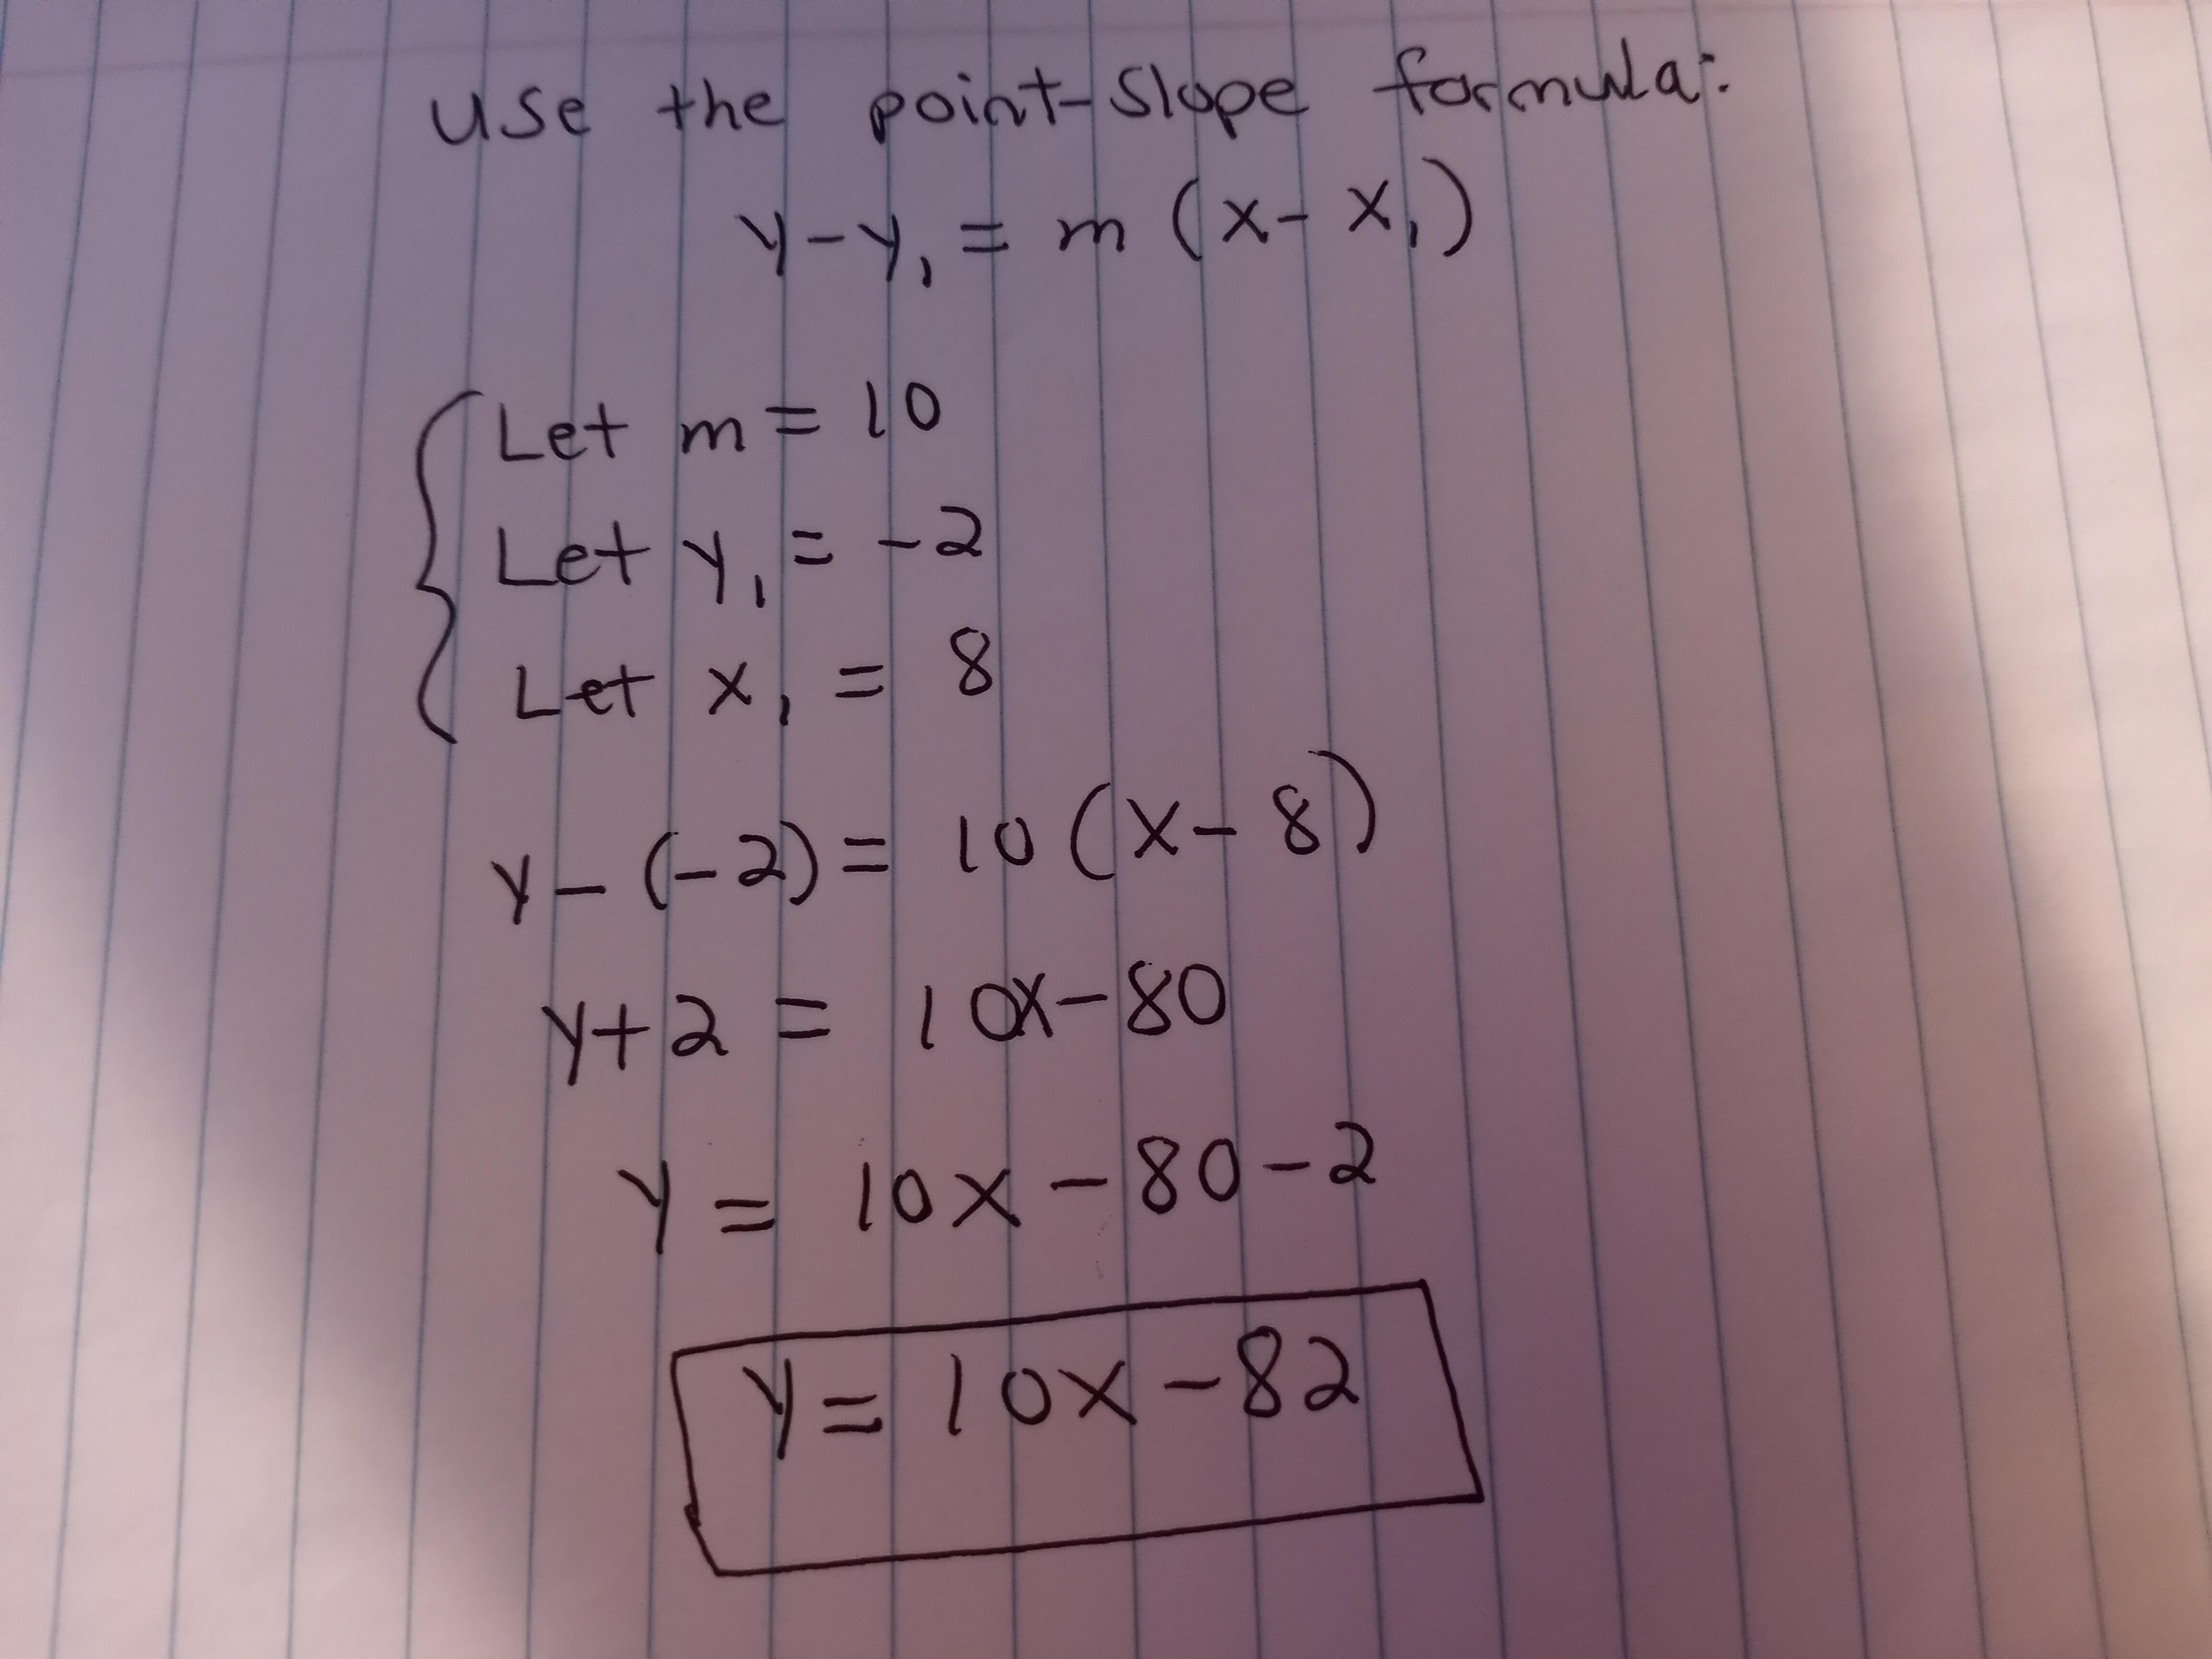 use the point-slope formula:
y-y₁ = m (x- x₁)
Let m = 10
Let y₁ = -2
Let x₁ = 8
y - (-2) = 10 (x - 8)
y+2 = 10x-80
y = 10x - 80 - 2
y = 10x - 82